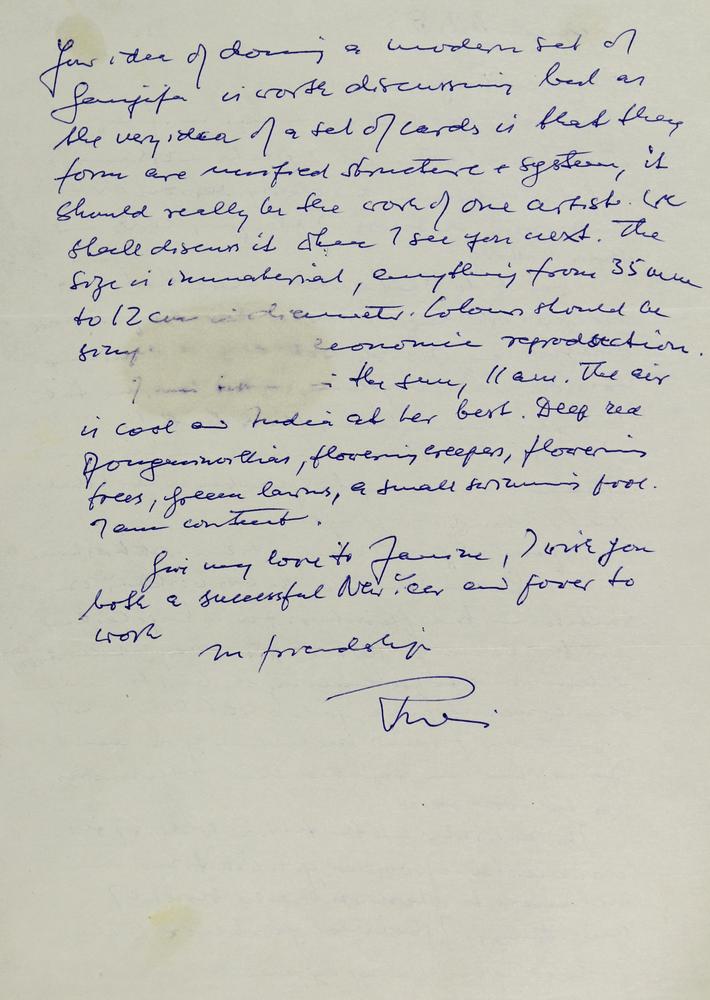 Your idea of doing a modern set of
Ganjifa is worth discussing but as
the very idea of a set of cards is that they
form are unified structure & system, it
should really be the work of one artist. We
shall discuss it when I see you next. The
size is immaterial, anything from 35 mm
to 12 cm in diameter. Colours should be
economic reproduction.
the sun, 11 am. The air
is cool and India at her best. Deep red
Bougainvillias, flowering creepers, flowering
trees, green lawns, a small swimming pool.
I am content.
Give my love to Janine, I wish you
both a successful New Year and power to
work
In friendship